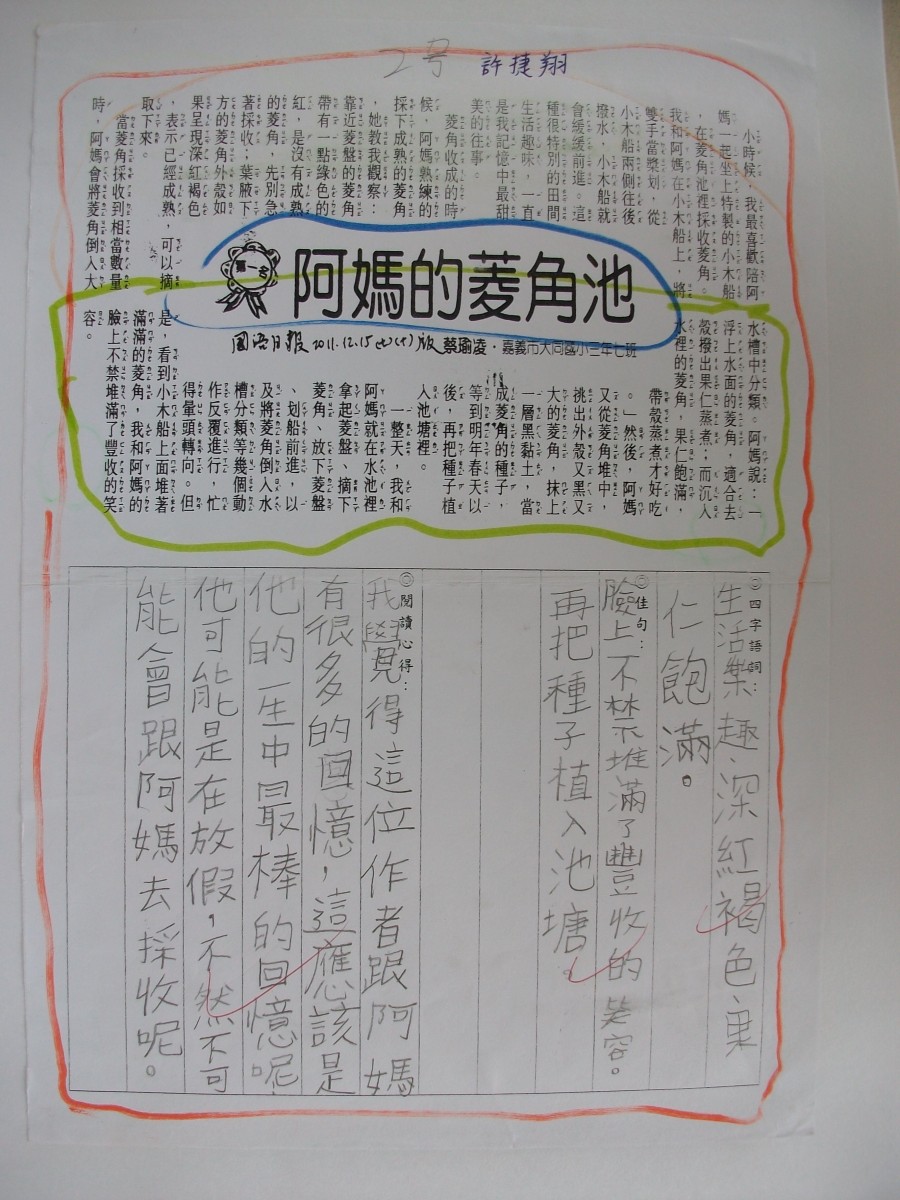 2号 許捷翔
小時候，我最喜歡陪阿
媽一起坐上特製的小木船
，在菱角池裡採收菱角。
我和阿媽在小木船上，將
雙手當槳划，從
小木船兩側往後
撥水，小木船就
會緩緩前進。這
種很特別的田間
生活趣味，一直
是我記憶中最甜
美的往事。
菱角收成的時
候，阿媽熟練的
採下成熟的菱角
，她教我觀察：
靠近菱盤的菱角
帶有一點綠色的
紅，是沒有成熟
的菱角，先別急
著採收；葉腋下
方的菱角外殼如
果呈現深紅褐色
，表示已經成熟，可以摘
取下來。
當菱角採收到相當數量
時，阿媽會將菱角倒入大
第一名
阿媽的菱角池
國語日報 2011.12.15 版 蔡瑜凌・嘉義市大同國小三年七班
水槽中分類。阿媽說：「
浮上水面的菱角，適合去
殼撥出果仁蒸煮；而沉入
水裡的菱角，果仁飽滿，
帶殼蒸煮才好吃
。」然後，阿媽
又從菱角堆中，
挑出外殼又黑又
大的菱角，抹上
一層黑黏土，當
成菱角的種子，
等到明年春天以
後，再把種子植
入池塘裡。
一整天，我和
阿媽就在水池裡
拿起菱盤、摘下
菱角、放下菱盤
、划船前進，以
及將菱角倒入水
槽分類等幾個動
作反覆進行，忙
得暈頭轉向。但
是，看到小木船上面堆著
滿滿的菱角，我和阿媽的
臉上不禁堆滿了豐收的笑
容。
◎四字語詞：
生活樂趣、深紅褐色、果
仁飽滿。
◎佳句：
臉上不禁堆滿了豐收的笑容。
再把種子植入池塘。
◎閱讀心得：
我覺得這位作者跟阿媽
有很多的回憶，這應該是
他的一生中最棒的回憶呢！
他可能是在放假，不然不可
能會跟阿媽去採收呢。